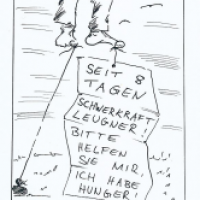 SEIT 8
TAGEN
SCHWERKRAFT
LEUGNER!
BITTE
HELFEN
SIE MIR,
ICH HABE
HUNGER!